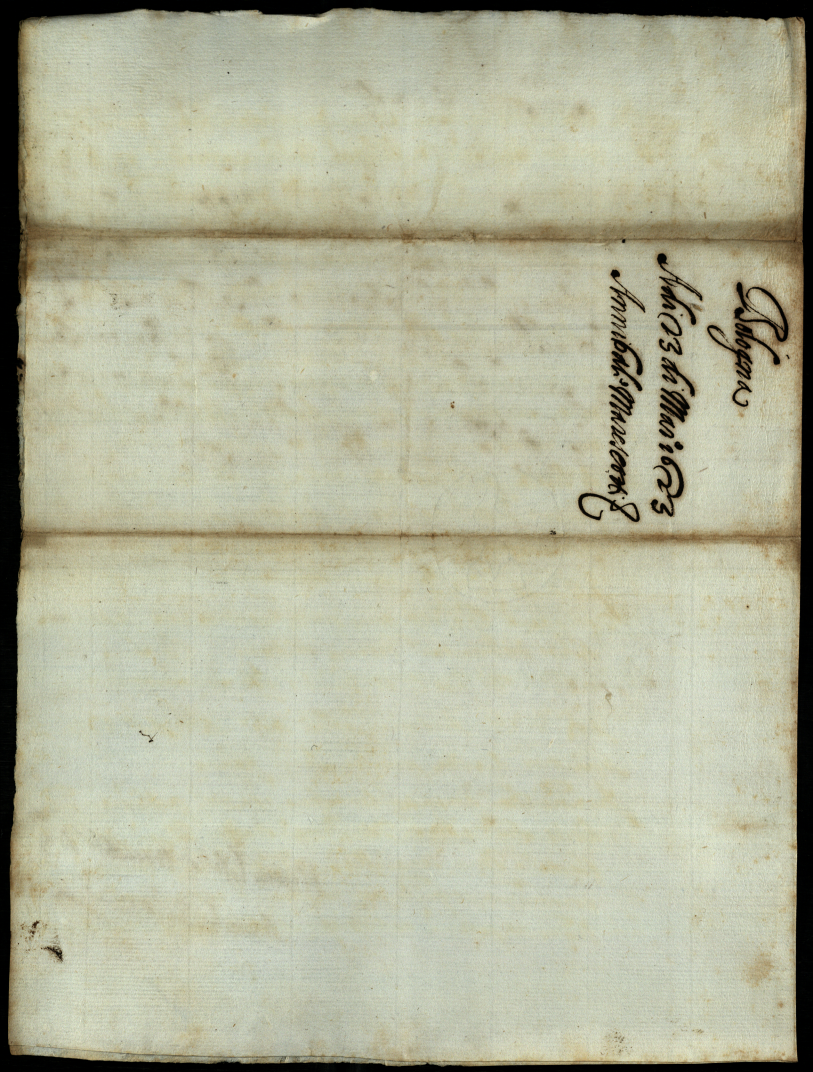 Bologna
Adi 23 di Mar 1623
Annibale Marescotti